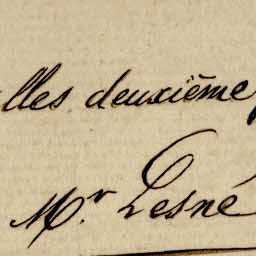 lles deuxième
Mr. Lesné